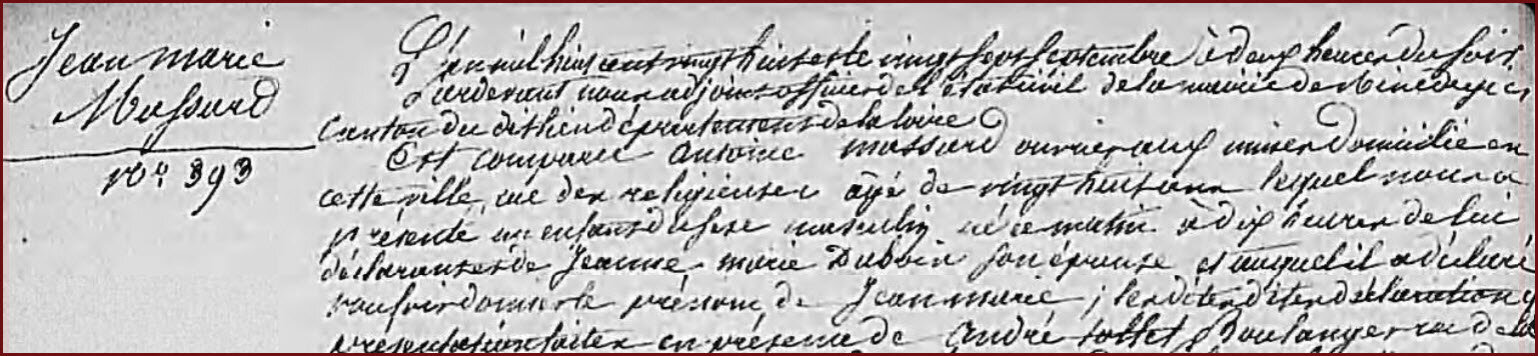 Jean marie
Massard
No. 393
L'an mil huit cent vingt huit et le vingt sept septembre à deux heures du soir
Pardevant nous adjoint officier de l'état civil de la mairie de
canton du dit lieu département de la loire
Est comparu antoine massard ouvrier aux mines domicilié en
cette ville rue des religieuses âgé de vingt huit ans lequel nous a
présenté un enfant du sexe masculin né ce matin à dix heures de lui
déclarant et de Jeanne marie Duboin son épouse et auquel il a déclaré
vouloir donner le prénom de Jean marie ; lesdites déclaration
présentation faites en présence de andré Boulanger rue de la